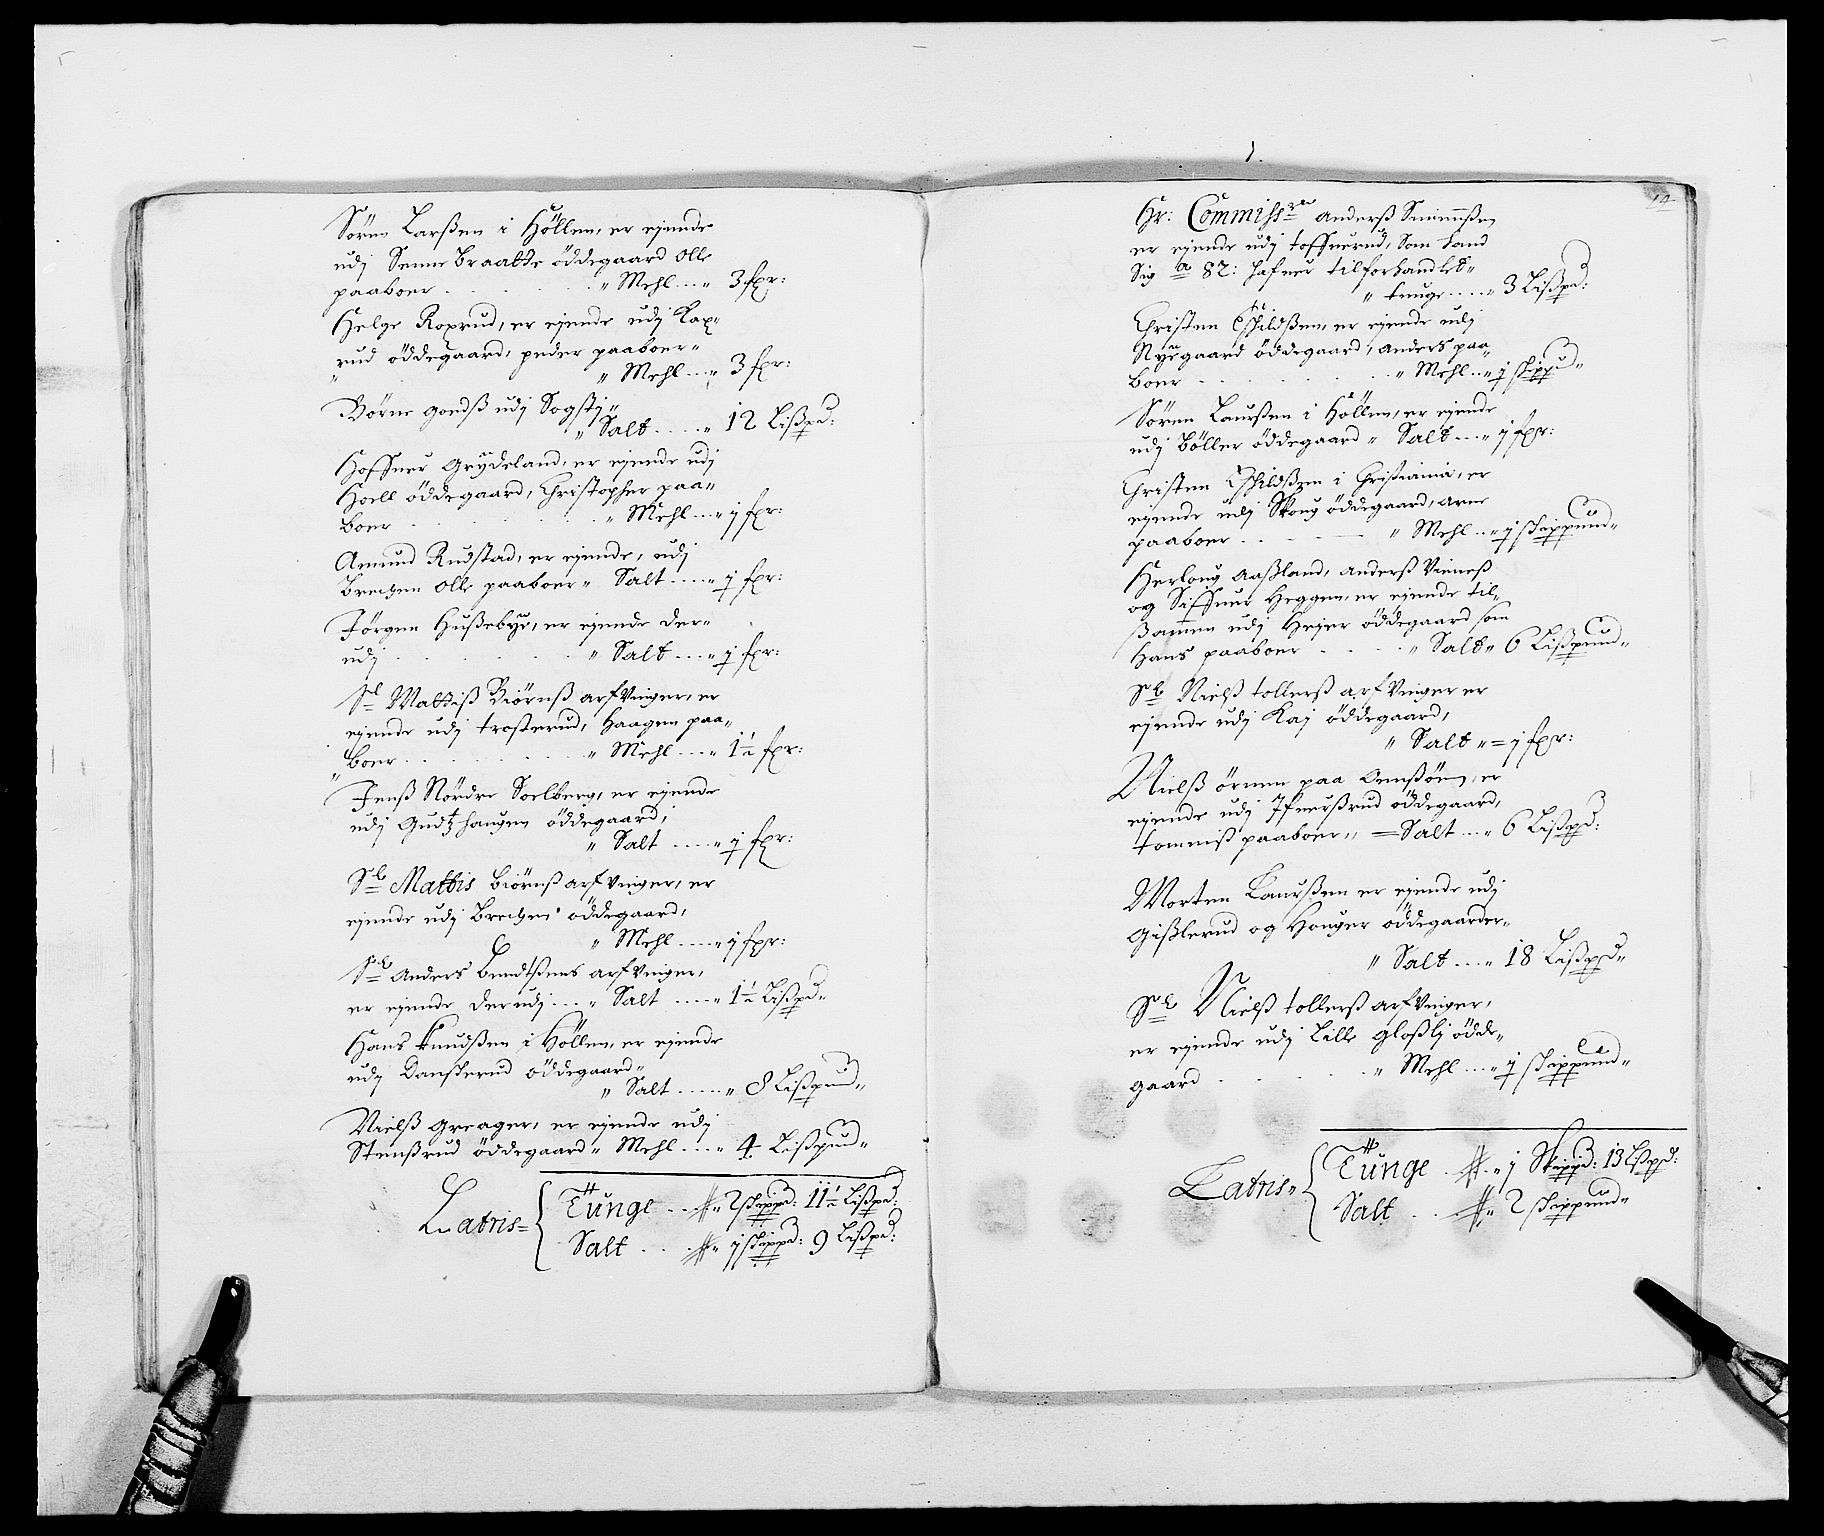 Sören Larßen i Höllen, er ejende
udj Senne Braatte öddegaard Olle
paaboer . . . " Mehl ... " 3 fxr:
Helge Roxrud, er ejende udj Kax-
rud öddegaard, peder paaboer "
" Mehl ... " 3 fxr:
Börne goedß udj Sogstj "
" Salt .... " 12 Lißpd:
Hoffuer Grydeland, er ejende udj
Hoell öddegaard, Christopher paa-
boer . . . " Mehl ... " j fxr:
Amund Rudstad, er ejende, udj
Brechen Olle paaboer " Salt .... " j fxr:
Jörgen Hußebye, er ejende der-
udj . . . " Salt .... " j fxr:
Sl Mattiß Biörnß arfvinger, er
ejende udj trosterud, Haagen paa-
boer . . . " Mehl .... " 1½ fxr:
Jenß Nördre Soelberg, er ejende
udj Gudtzhaugen öddegaard,
" Salt .... " j fxr:
Sl Mattis Biörnß arfvinger, er
ejende udj Brechen öddegaard,
" Mehl .... " j fxr:
Sl Anders Bendtßens arfvinger,
er ejende derudj ... " Salt .... " 1½ Lißpd "
Hans Knudßen i Höllen, er ejende
udj Danskerud öddegaard "
" Salt ..... " 8 Lißpund "
Nielß Greager, er ejende udj
Stenßrud öddegaard " Mehl ... " 4 Lißpund "
Latris = Tunge .. " 2 skippd: 11½ Lißpd:
Salt ... " j skippd: 9 Lißpd:
14
Hr: Commiss Anderß Simenßen
er ejende udj toffuerud, Som hand
Sig Ao 82: hafuer tilforhandlet "
" tunge .... " 3 Lißpd:
Christen Eskildßen, er ejende udj
Nyegaard öddegaard, Anders paa-
boer . . . " Mehl .. " j skippud "
Sören Laurßen i Höllen, er ejende
udj Böller öddegaard " Salt ... " j fxr:
Christen Eskildßen i Christiania, er
ejende udj Skoug öddegaard, Arne
paaboer . . . " Mehl .. " j skippund "
Herloug Aaßland, Anderß Vieneß
og Siffuer Heggen, er ejende til-
ßammen udj Hejer öddegaard som
Hans paaboer . . . " Salt " 6 Lißpund "
Sl Nielß tollerß arfvinger er
ejende udj Kaj öddegaard,
" Salt " = j fxr:
Nielß örnen paa Ormßöen, er
ejende udj Ifuerßrud öddegaard,
tommiß paaboer " = Salt ... " 6 Lißpd:
Morten Laurßen er ejende udj
Gißlerud og Houger öddegaarder "
" Salt ... " 18 Lißpd "
Sl Nielß tollerß arfvinger,
er ejende udj Lille Gloslj ödde-
gaard . . . " Mehl .... " j skippund "
Latris " Tunge .. " j Skippd: 13 Lißpd:
Salt .. " 2 skippund "